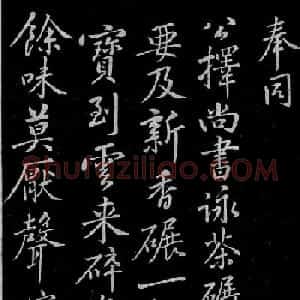 奉同
公擇尚書詠茶碾
要及新香碾一
寶到雲来碎
餘味莫厭聲
Shufaziliao.com